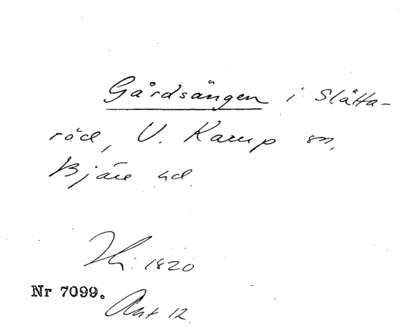 Gårdsängen i Slätta-
röd, V. Karup sn,
Bjäre hd.
Hi: 1820
Nr 7099.
Akt 12.